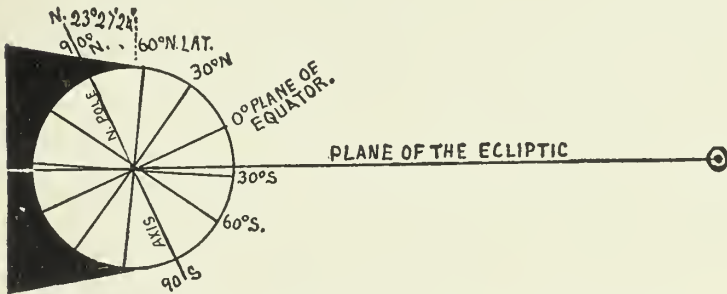 N. 23°27'24"
90°N.. 60°N.LAT.
30°N
N. POLE
0° PLANE OF
EQUATOR.
PLANE OF THE ECLIPTIC
30°S
60°S.
AXIS
90°S